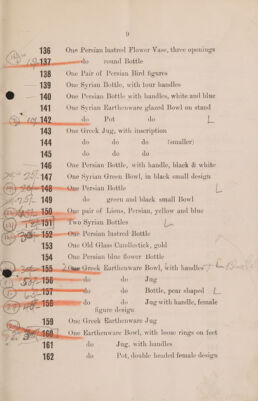 9
136 One Persian lustred Flower Vase, three openings
137 do round Bottle
138 One Pair of Persian Bird figures
139 One Syrian Bottle, with four handles
140 One Persian Bottle with handles, white and blue
141 One Syrian Earthenware glazed Bowl on stand
142 do Pot do L
143 One Greek Jug, with inscription
144 do do do (smaller)
145 do do do
146 One Persian Bottle, with handle, black & white
147 One Syrian Green Bowl, in black small design
148 One Persian Bottle L
149 do green and black small Bowl
150 One pair of Lions, Persian, yellow and blue
151 Two Syrian Bottles L
152 One Persian lustred Bottle
153 One Old Glass Candlestick, gold
154 One Persian blue flower Bottle
155 One Greek Earthenware Bowl, with handles
156 do do Jug
157 do do Bottle, pear shaped L
158 do do Jug with handle, female
figure design
159 One Greek Earthenware Jug
160 One Earthenware Bowl, with loose rings on feet
161 do Jug, with handles
162 do Pot, double headed female design